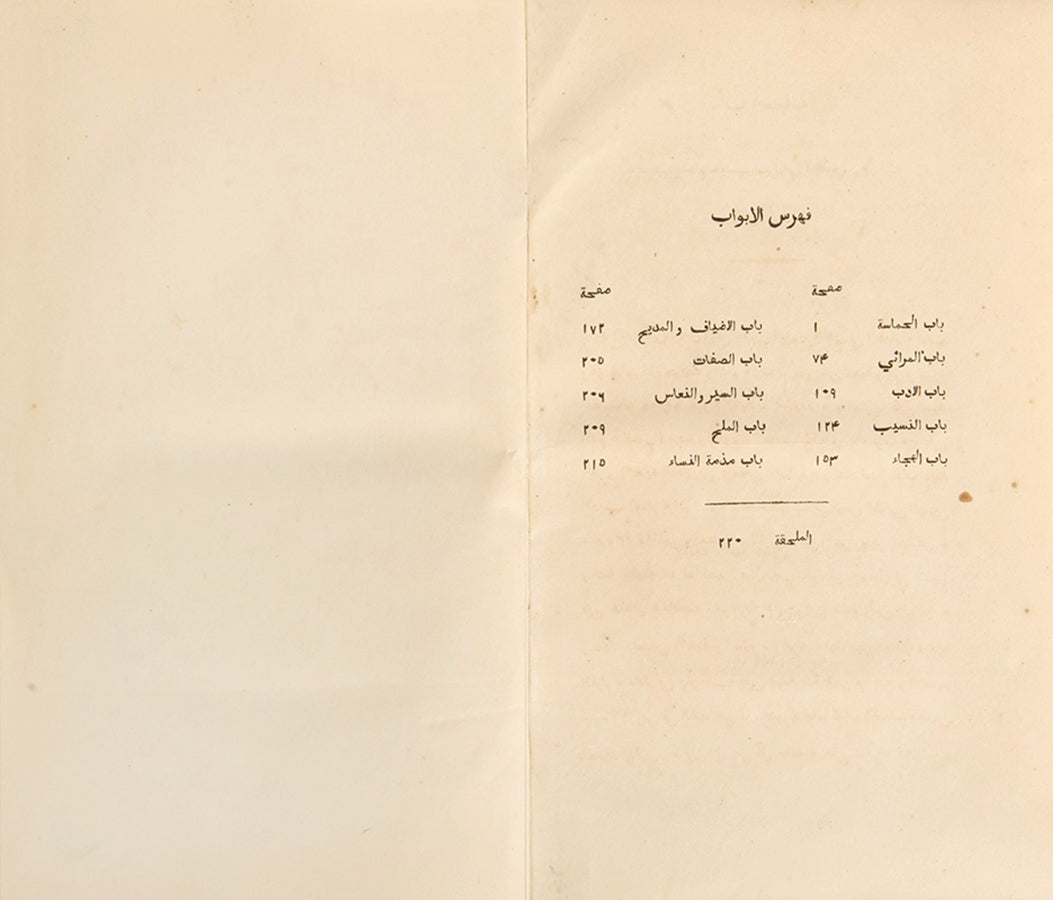 فهرس الابواب
صفحة صفحة
باب الحماسة ١ باب الاضياف والمديح ١٧٢
باب المراثي ٧۴ باب الصفات ٢٠٥
باب الادب ١٠٩ باب السير والنعاس ٢٠٦
باب النسيب ١٢۴ باب الملح ٢٠٩
باب الهجاء ١٥٣ باب مذمة النساء ٢١٥
الملحقة ٢٢٠